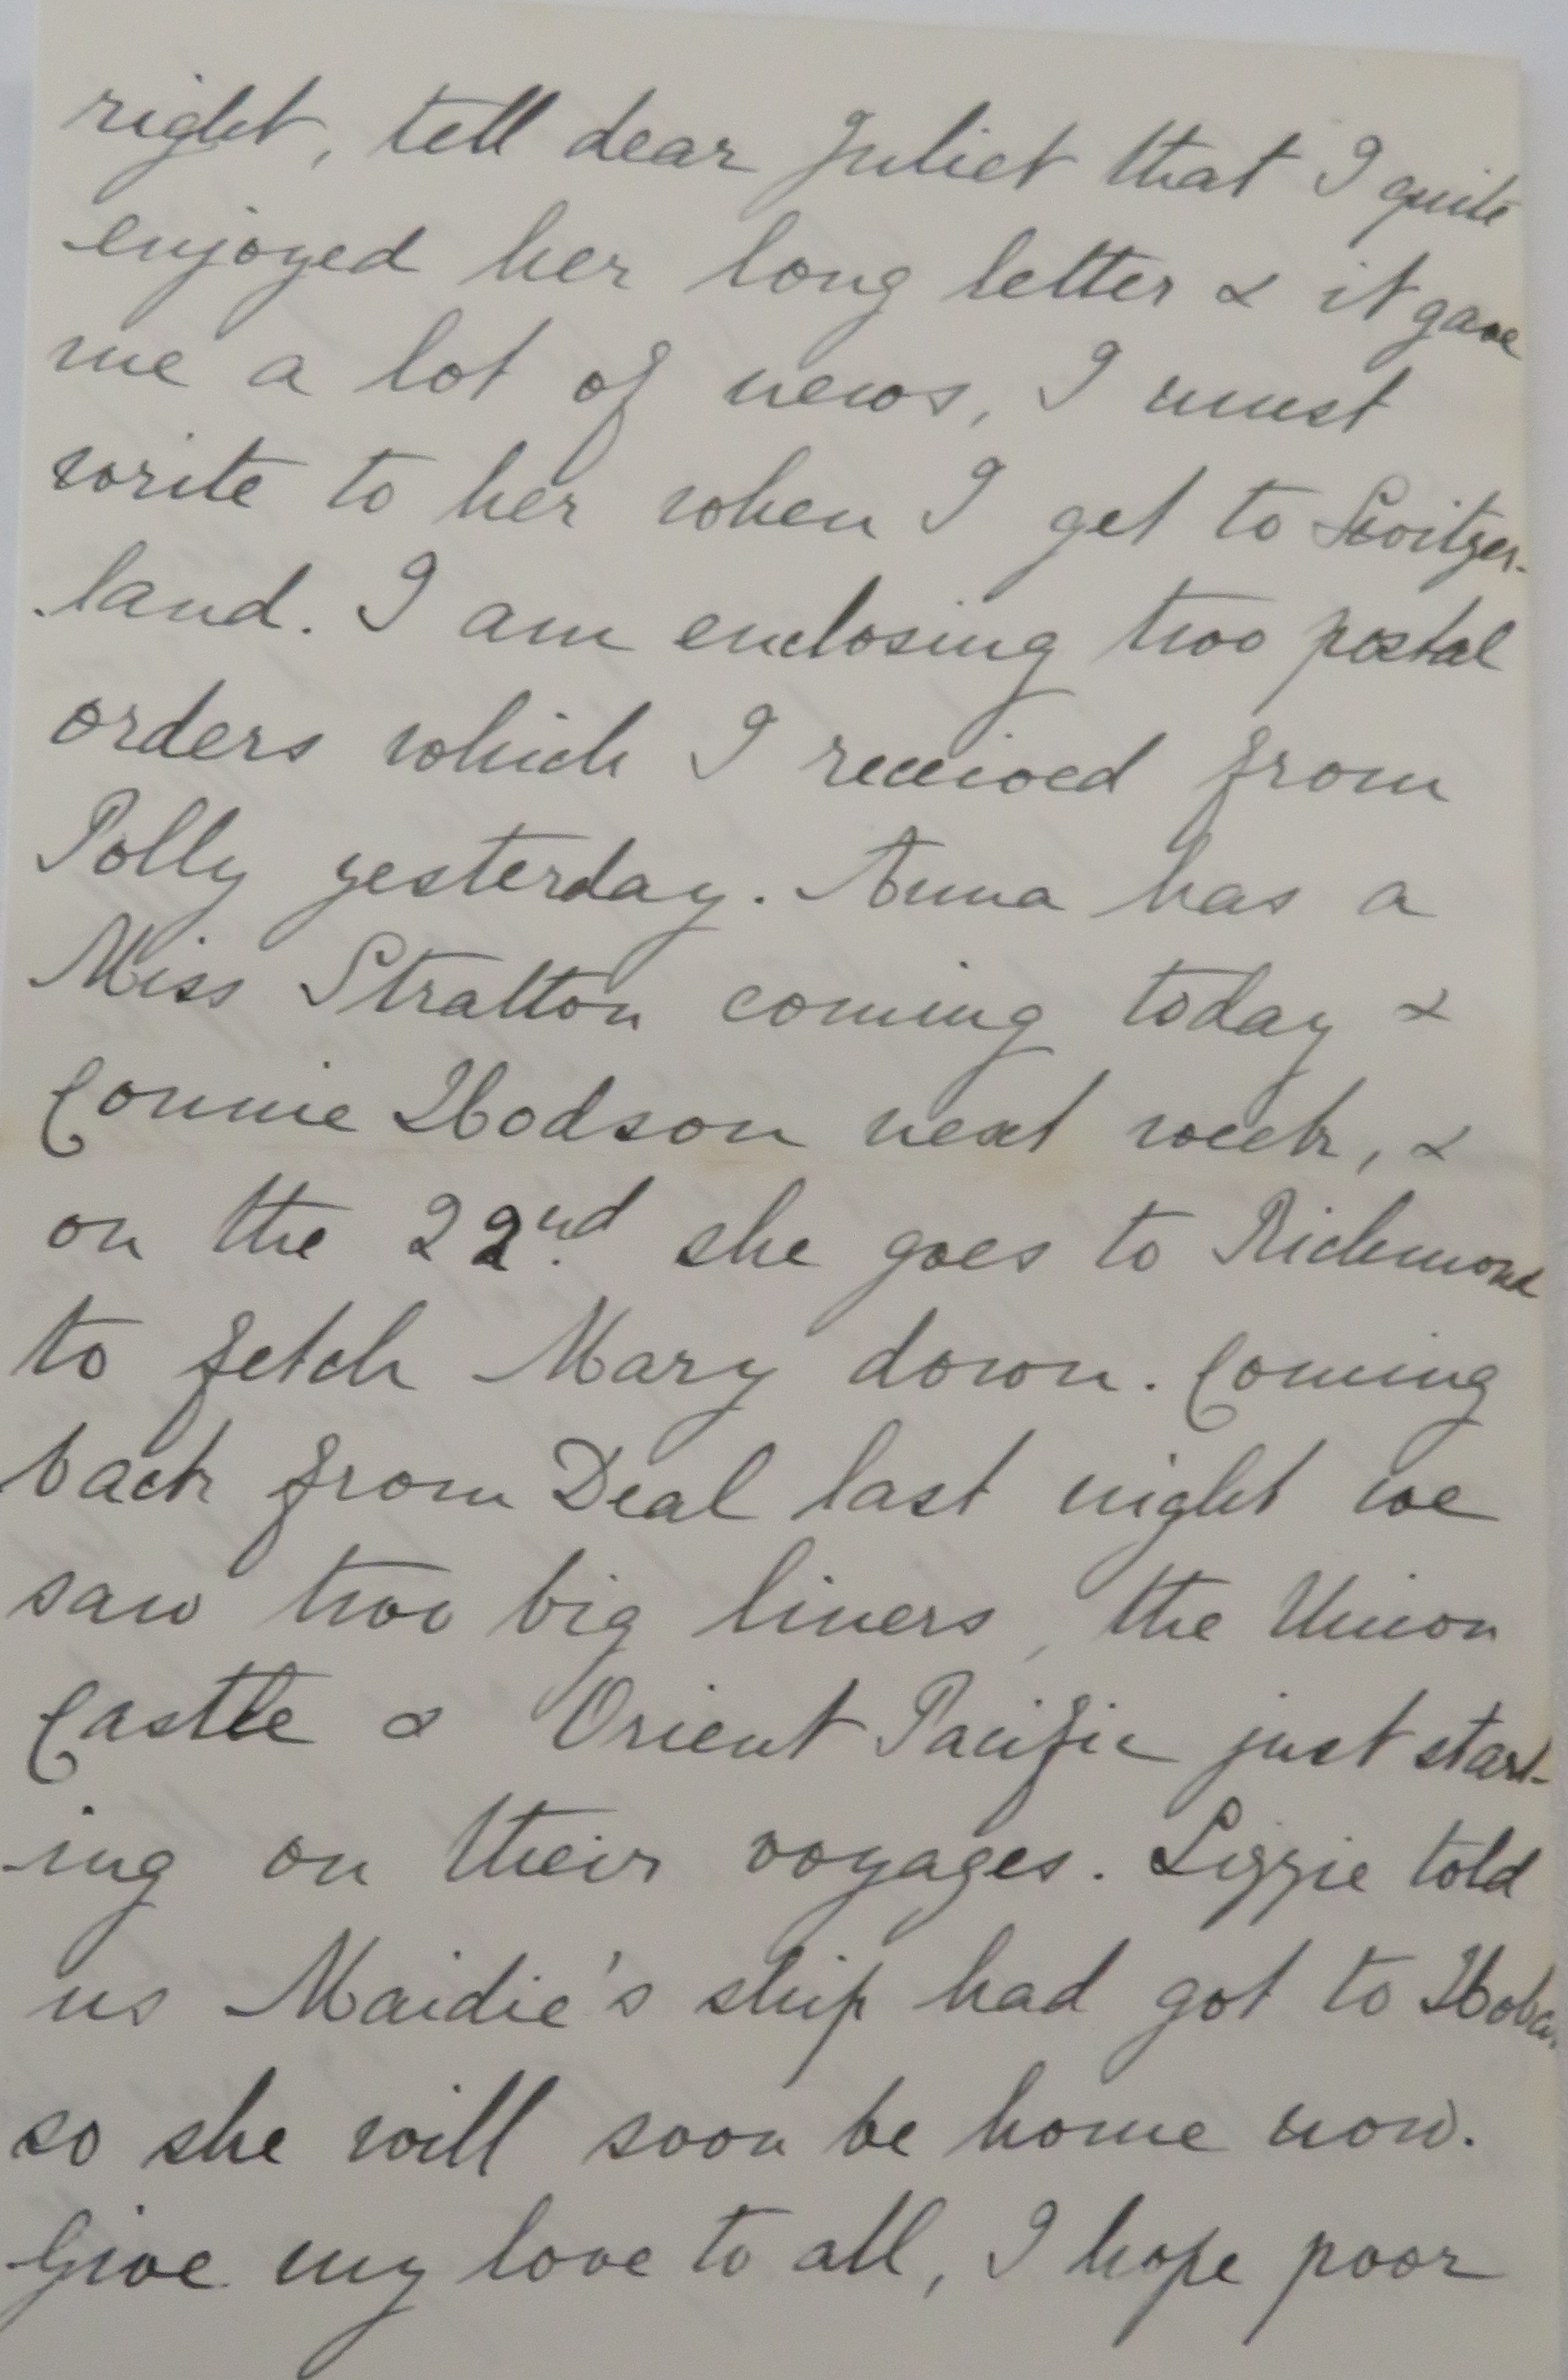 right, tell dear Juliet that I quite
enjoyed her long letter & it gave
me a lot of news, I must
write to her when I get to Switzer-
land. I am enclosing two postal
orders which I received from
Polly yesterday. Anna has a
Miss Stratton coming today &
Connie Hodson next week, &
on the 22nd she goes to Richmond
to fetch Mary down. Coming
back from Deal last night we
saw two big liners, the Union
Castle & Orient Pacific just start-
ing on their voyages. Lizzie told
us Maidie's ship had got to
so she will soon be home now.
Give my love to all, I hope poor